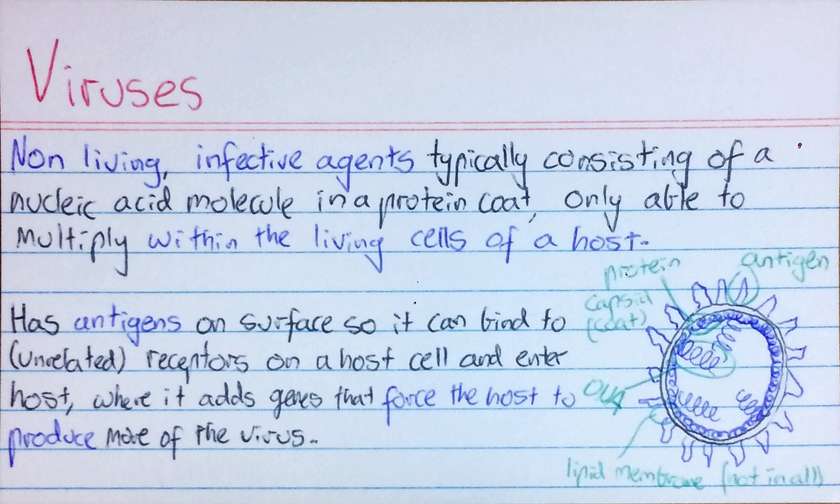 Viruses
Non living, infective agents typically consisting of a
nucleic acid molecule in a protein coat, only able to
multiply within the living cells of a host.
Has antigens on surface so it can bind to
(unrelated) receptors on a host cell and enter
host, where it adds genes that force the host to
produce more of the virus.
protein
capsid
(coat)
antigen
lipid membrane (not in all)